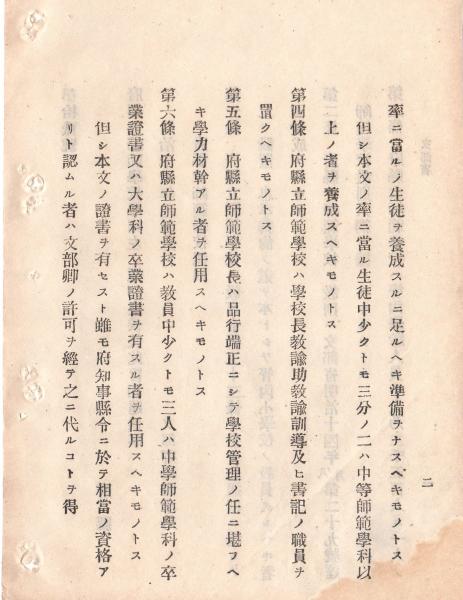 二
率ニ當ルノ生徒ヲ養成スルニ足ルヘキ準備ヲナスヘキモノトス
但シ本文ノ率ニ當ル生徒中少クトモ三分ノ二ハ中等師範學科以
上ノ者ヲ養成スヘキモノトス
第四條 府縣立師範學校ハ學校長敎諭助敎諭訓導及ヒ書記ノ職員ヲ
置クヘキモノトス
第五條 府縣立師範學校長ハ品行端正ニシテ學校管理ノ任ニ堪フヘ
キ學力材幹アル者ヲ任用スヘキモノトス
第六條 府縣立師範學校ハ敎員中少クトモ三人ハ中學師範學科ノ卒
業證書又ハ大學科ノ卒業證書ヲ有スル者ヲ任用スヘキモノトス
但シ本文ノ證書ヲ有セスト雖モ府知事縣令ニ於テ相當ノ資格ア
リト認ムル者ハ文部卿ノ許可ヲ經テ之ニ代ルコトヲ得